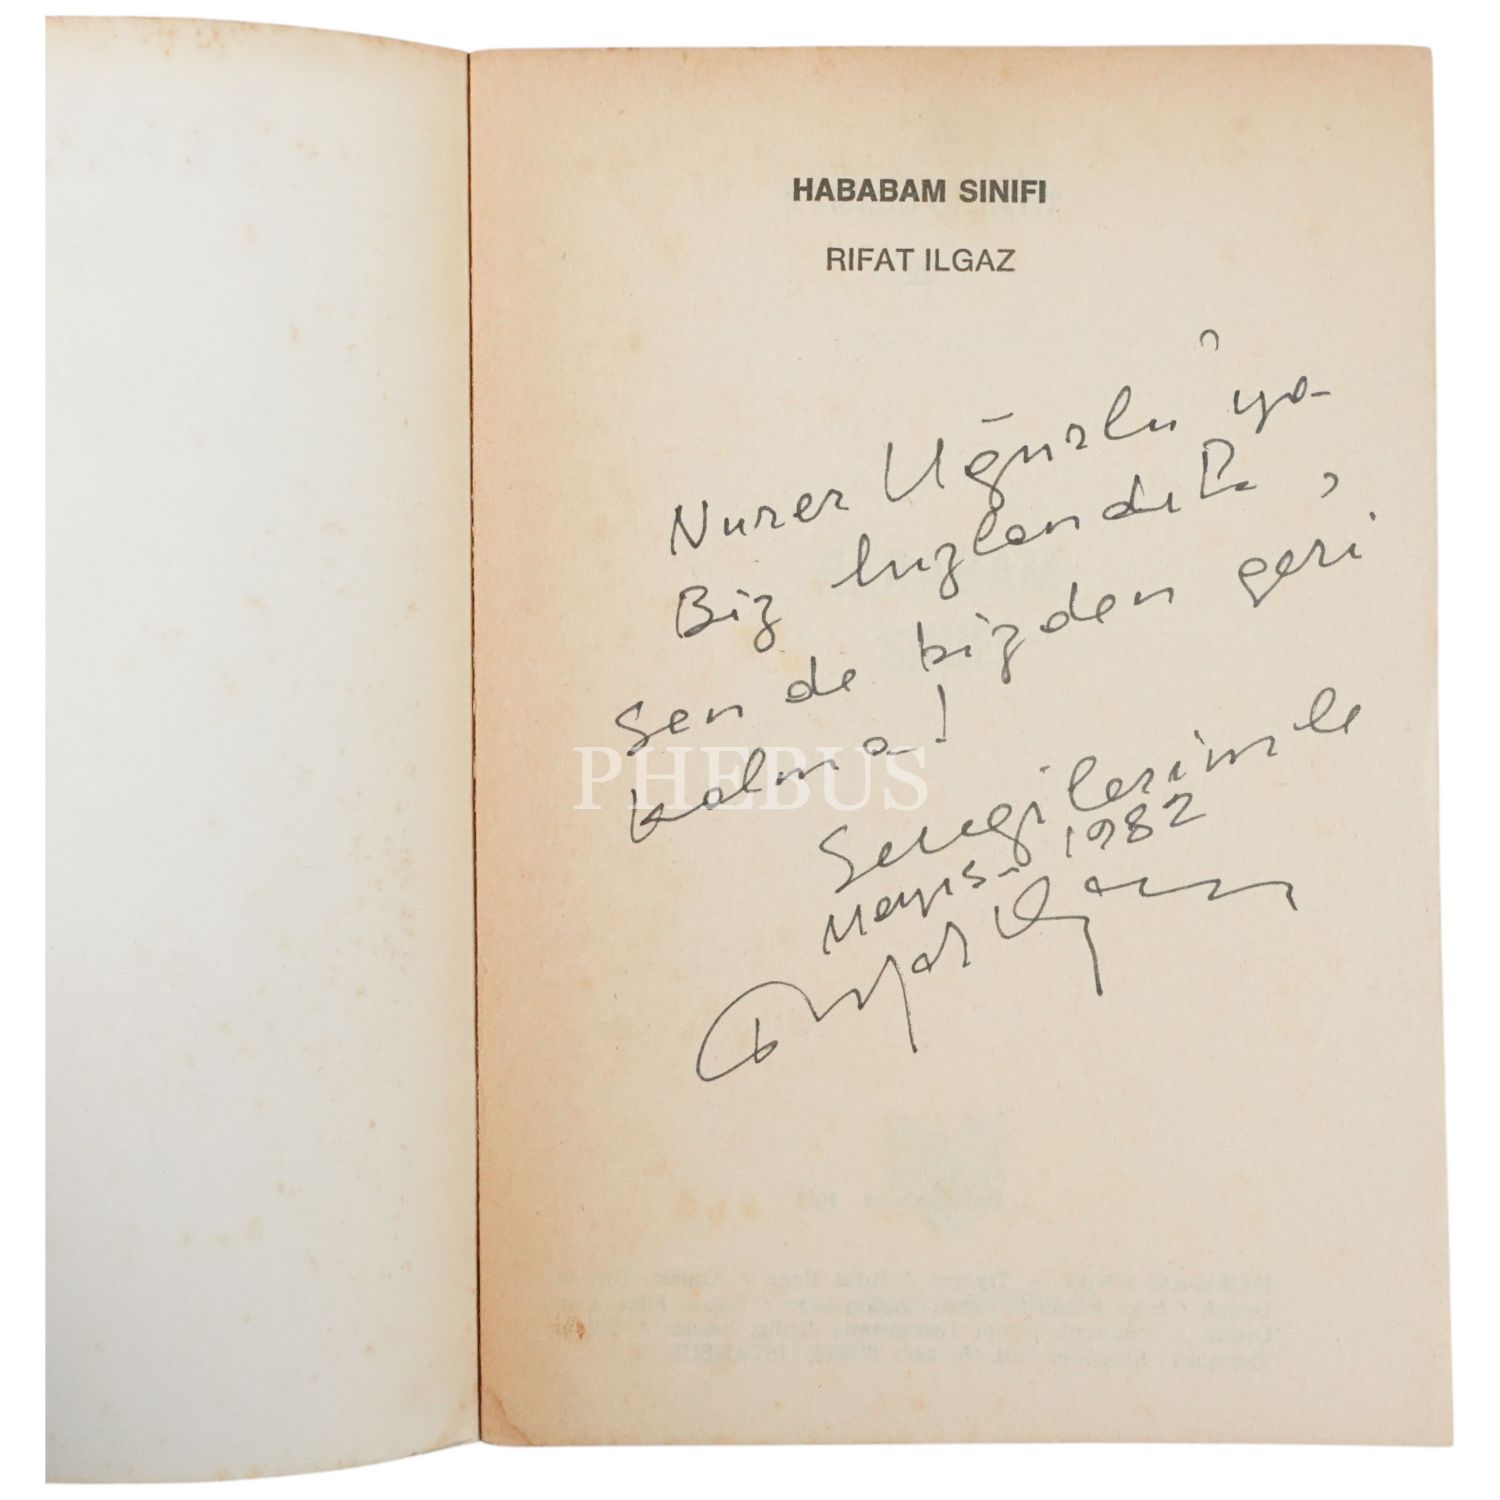 HABABAM SINIFI
RIFAT ILGAZ
Nurer Uğurlu'ya
Biz hızlandık,
Sen de bizden geri
kalma!
Sevgilerimle
Mayıs. 1982
Rıfat Ilgaz
PHEBUS